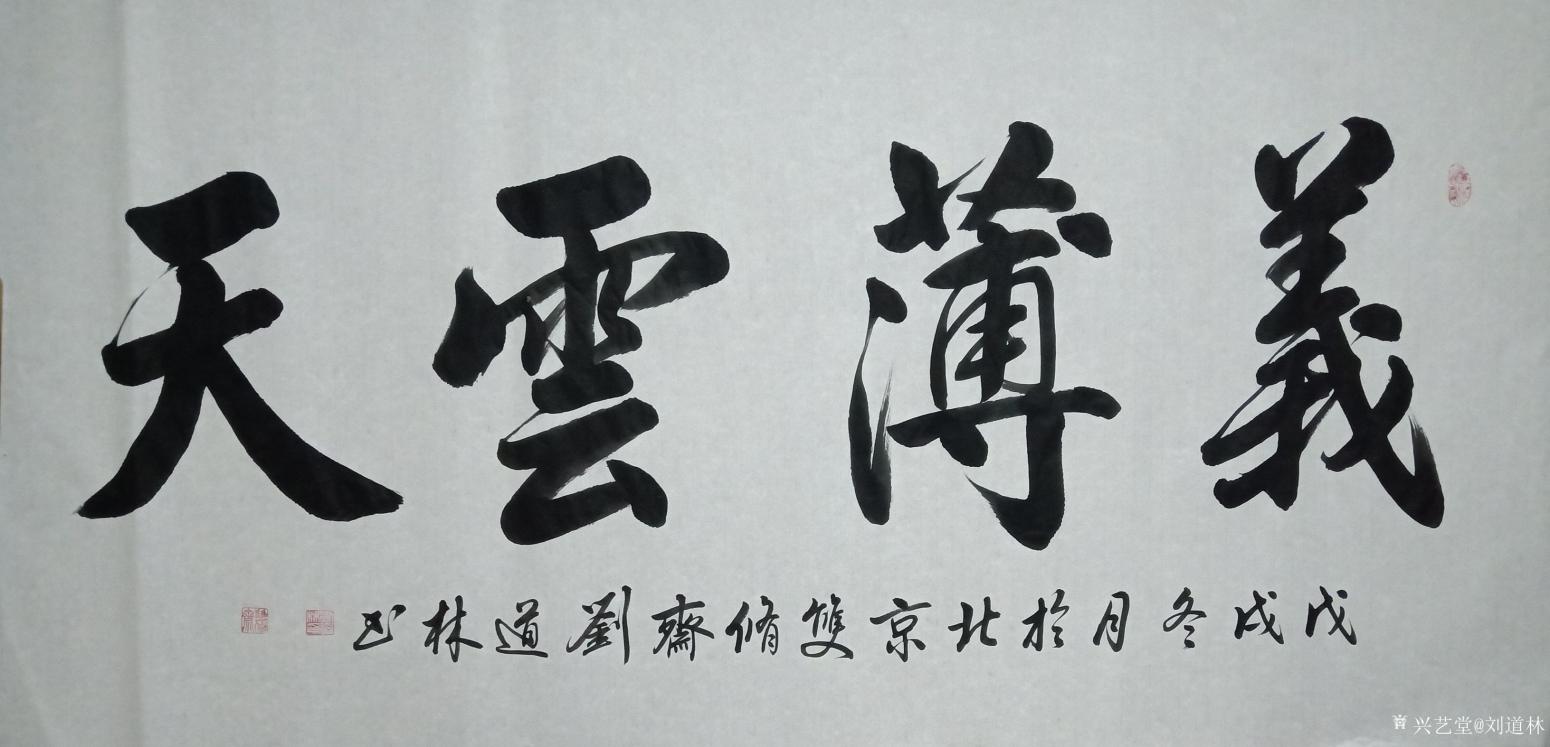 義薄雲天
戊戌冬月於北京雙脩齋劉道林书
兴艺堂@刘道林